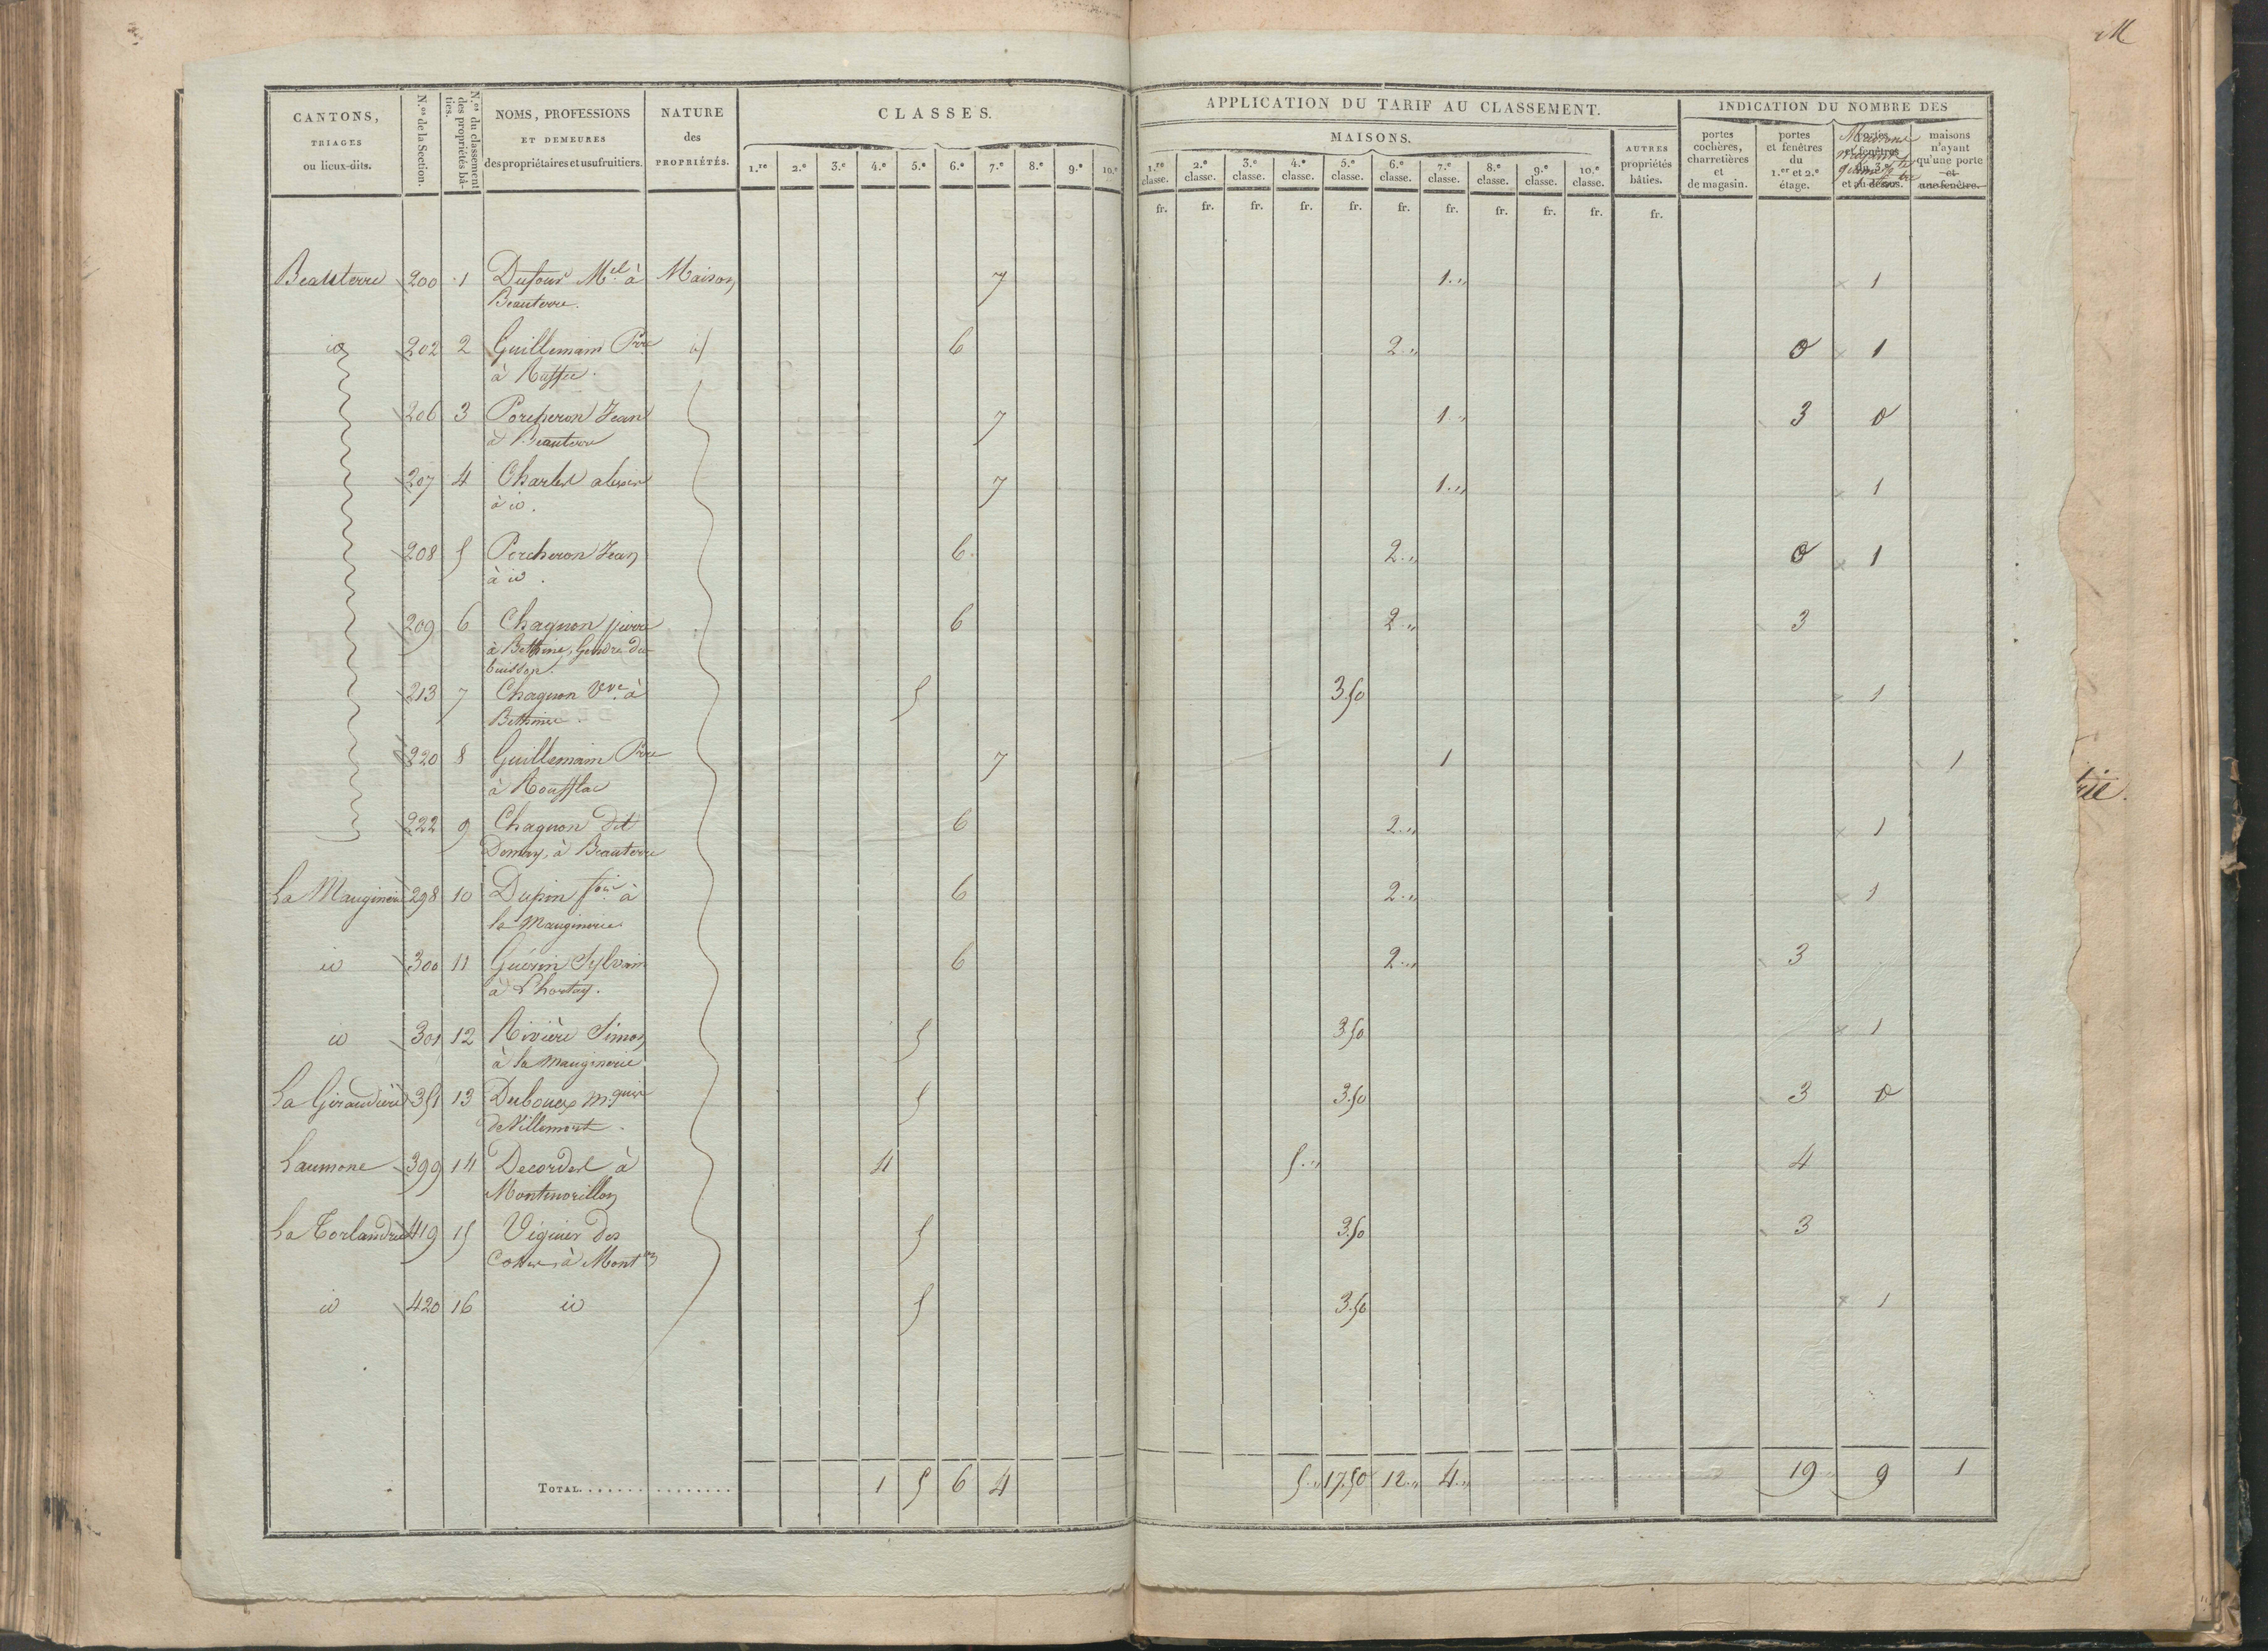 M
CANTONS,
TRIAGES
ou lieux-dits.
N.os de la Section.
N.os du classement des propriétés bâties.
NOMS, PROFESSIONS
ET DEMEURES
des propriétaires et usufruitiers.
NATURE
des
PROPRIÉTÉS.
CLASSES.
1.re 2.e 3.e 4.e 5.e 6.e 7.e 8.e 9.e 10.e
APPLICATION DU TARIF AU CLASSEMENT.
MAISONS.
1.re classe. 2.e classe. 3.e classe. 4.e classe. 5.e classe. 6.e classe. 7.e classe. 8.e classe. 9.e classe. 10.e classe.
AUTRES
propriétés
bâties.
INDICATION DU NOMBRE DES
portes
cochères,
charretières
et
de magasin.
portes
et fenêtres
du
1.er et 2.e
étage.
portes
et fenêtres
du 3.e
et au-dessus.
Maisons
maisons
n'ayant
qu'une porte
et
une fenêtre.
fr. fr. fr. fr. fr. fr. fr. fr. fr. fr. fr.
Beauterre 200 1 Dufour Mel à Maison 7 1.,, 1
Beauterre.
id 202 2 Guillemain Prre id 6 2.,, 0 1
à Ruffec.
206 3 Porcheron Jean 7 1.,, 3 0
à Beauterre
207 4 Charles alexis 7 1.,, 1
à id.
208 5 Porcheron Jean 6 2.,, 0 1
à id.
209 6 Chagnon pierre 6 2.,, 3
à Bethine, Gendre du
buisson.
213 7 Chagnon Vve à 5 3.50 1
Bethine.
220 8 Guillemain Prre 7 1 1
à Roufflac
222 9 Chagnon dit 6 2.,, 1
Demay, à Beauterre
La Mauginerie 298 10 Dupin fois à 6 2.,, 1
la Mauginerie
id 300 11 Guérin Sylvain 6 2.,, 3
à
id 301 12 Rivière Simon 5 3.50 1
à la mauginerie
La Giraudière 351 13 Dubouex mquis 5 3.50 3 0
de Villemort.
Laumone 399 14 Decordes à 4 5.,, 4
Montmorillon
La Torlandrie 419 15 Véginer des 5 3.50 3
à Mont on
id 420 16 id 5 3.50 1
TOTAL. 1 5 6 4 5.,, 17.50 12.,, 4.,, 19 9 1